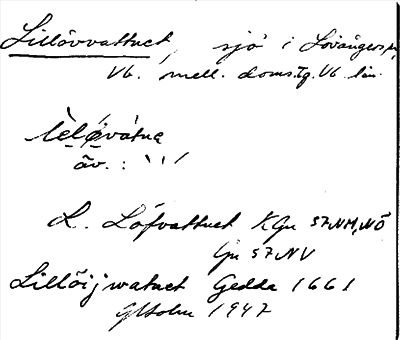 Lillövvattnet, sjö i Lövångers sn,
Vb. mell. doms.tg. Vb. län.
lèløvátnɐ
äv. :
L. Löfvattnet KGn 57 NM, NÖ
Gn 57 NV
Lillöijwatnet Gedda 1661
GHolm 1947